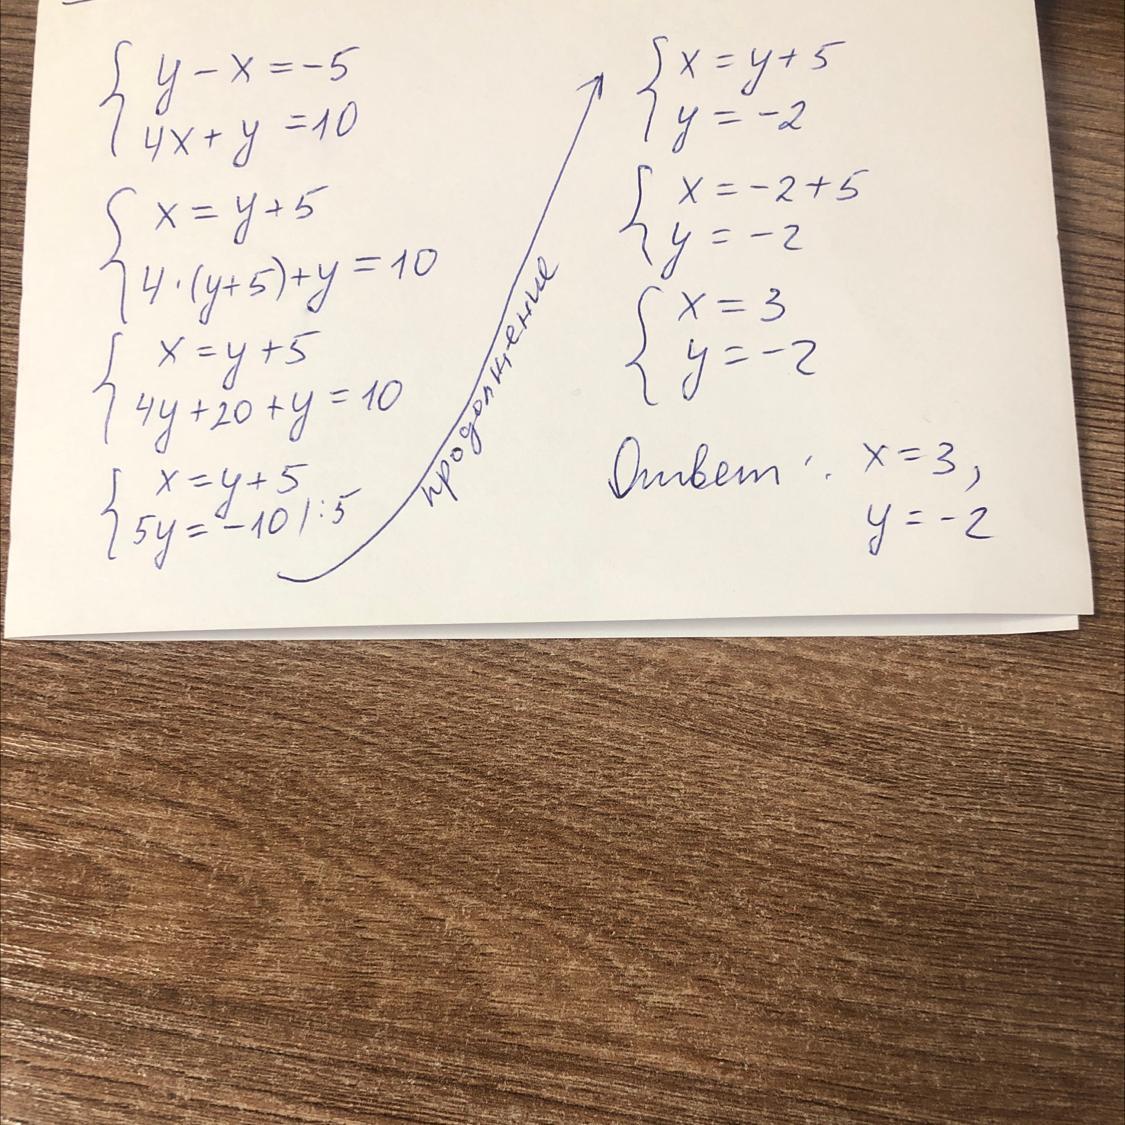 y - x = -5
4x + y = 10
x = y + 5
4 · (y + 5) + y = 10
x = y + 5
4y + 20 + y = 10
x = y + 5
5y = -10 | : 5
продолжение
x = y + 5
y = -2
x = -2 + 5
y = -2
x = 3
y = -2
Ответ : x = 3,
y = -2